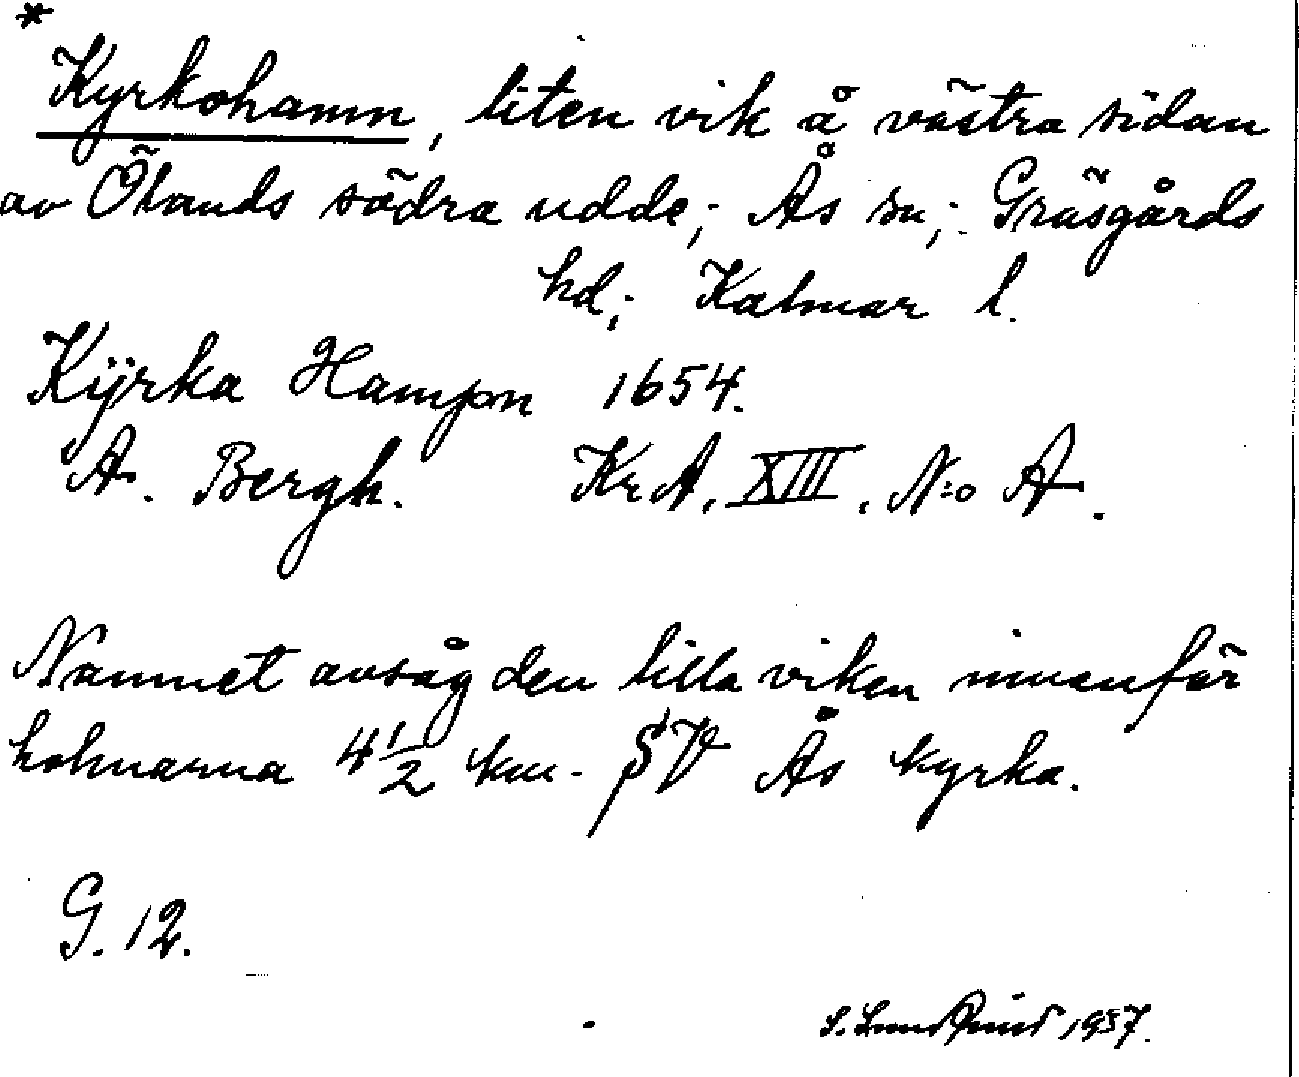 *
Kyrkohamn, liten vik å västra sidan
av Ölands södra udde; Ås sn; Gräsgårds
hd; Kalmar l.
Kÿrka Hampn 1654.
A. Bergh. KrA, XIII, N:o A.
Namnet avsåg den lilla viken innanför
holmarna 4 1/2 km. SV Ås kyrka.
G. 12.
S. Lundquist 1937.